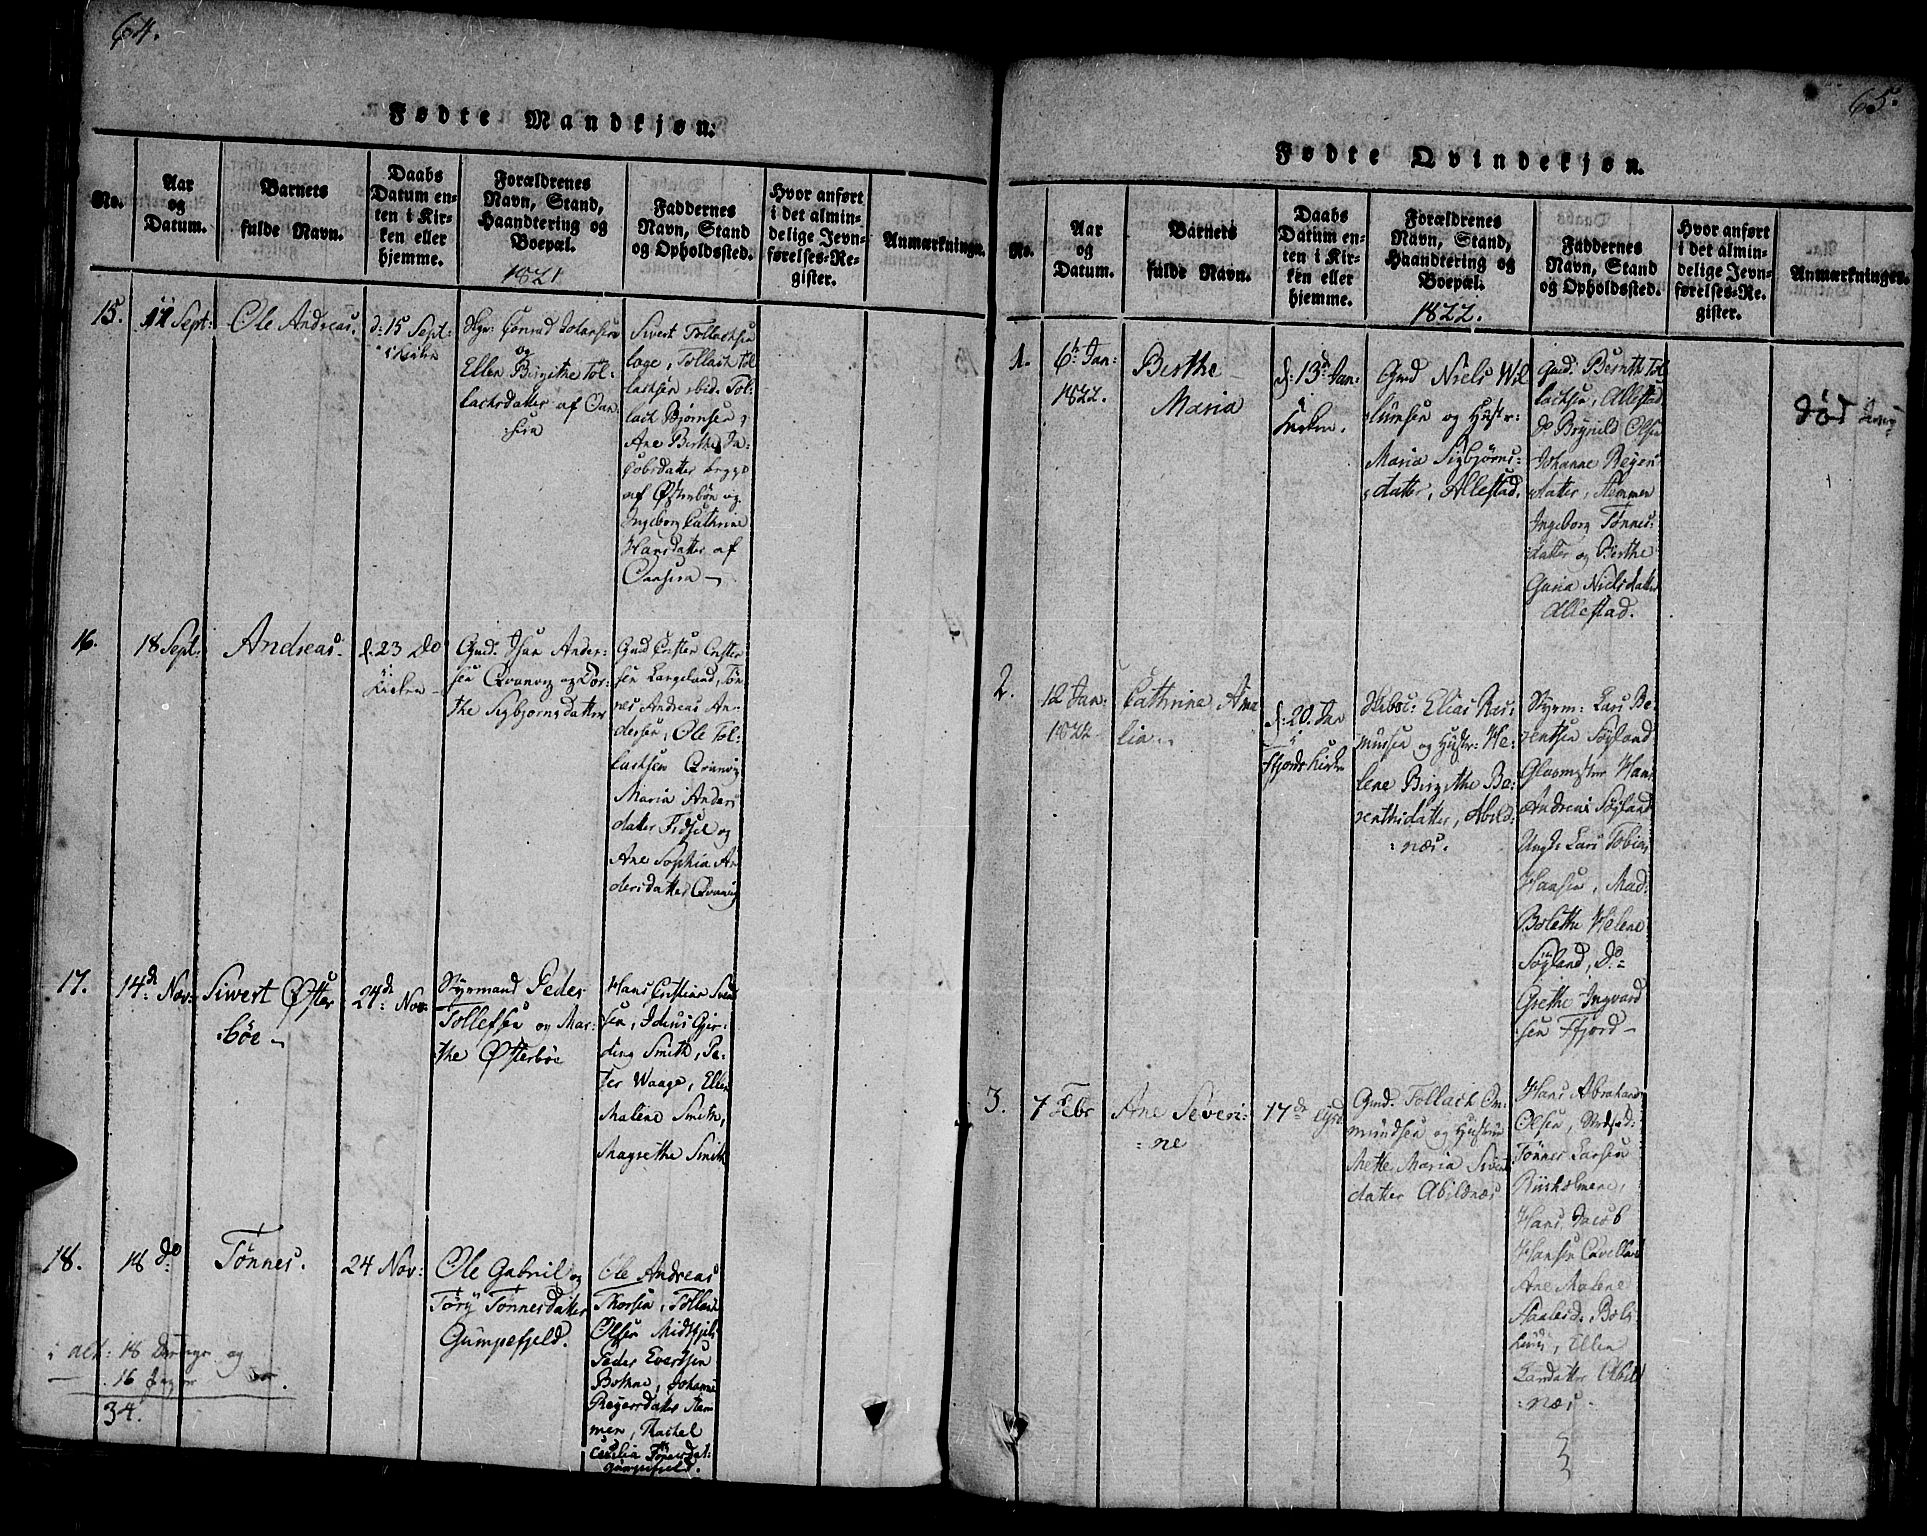 64.
Fødte Mandkjøn.
No.
Aar
og
Datum.
Barnets
fulde Navn.
Daabs
Datum en-
ten i Kir-
ken eller
hjemme.
Forældrenes
Navn, Stand,
Haandtering og
Boepæl.
1821
Faddernes
Navn, Stand
og Opholdssted.
Hvor anført
i det almin-
delige Jevn-
førelses-Re-
gister.
Anmærkninger.
15.
11 Sept:
Ole Andreas.
d: 15 Sept:
i Kirken
Conrad Johansen
og
Ellen Birgithe Tol-
lachsdatter af
Sivert Tollachsen
Loge, Tollach Tol
lachsen ibid. Tol-
lach Bjørnsen,
Ane Berthe Ja-
cobsdatter begge
af Østerbøe og
Ingeborg Cathrine
Hansdatter af
16.
18 Sept:
Andreas.
d. 23 do
i
Kirken
Gmd. Ander-
sen Qvanvig og Dor-
the Sigbjørnsdatter
Gmd Crister Crister
sen Langeland, Tøn
nes Andreas An-
dersen, Ole Tol-
lachsen Qvanvig
Maria Anders
datter Fidsel og
Ane Sophia An
dersdatter Qvanvig
17.
14de Nov:
Siwert Øster
bøe
24de Nov:
Styrmand Peder
Tollefsen og Mar-
the Østerbøe
Hans Cristian Svend
sen, Gjer-
ding Smith, Pe-
ter Waage, Ellen
Malene Smith,
Magrethe Smith
18.
18 do
Tønnes.
24 Nov:
Ole Gabriel og
Tory Tønnesdatter
Gumpefjeld.
Ole Andreas
Thorsen, Tollak
Olsen Midtfjeld
Peder Evertsen
Bothne, Johanne
Reyersdatter Stem
men, Rachel
Cecilia Tønesdat:
Gumpefjeld.
i alt: 18 Drenge og
16 Piger
34.
65.
Fødte Qvindekjøn.
No.
Aar
og
Datum.
Barnets
fulde Navn.
Daabs
Datum en-
ten i Kir-
ken eller
hjemme.
Forældrenes
Navn, Stand,
Haandtering og
Boepæl.
1822.
Faddernes
Navn, Stand
og Opholdssted.
Hvor anført
i det almin-
delige Jevn-
førelses-Re-
gister.
Anmærkninger.
1.
6te Jan:
1822.
Berthe
Maria
d: 13de Jan:
i
Kirken.
Gmd Niels Wil
lumsen og Hustr:
Maria Sigbjørns-
datter, Allestad.
Gmd: Bernth Tol
lachsen, Allestad
do Brynild Olsen
Johanne Reyers
datter, Stemmen
Ingeborg Tønnes-
datter og Berthe
Guria Nielsdatter
Allestad.
død
2.
12 Jan:
1822
Cathrina Ama
lia
d: 20 Jan
i
Ffjords Kirke
Elias Ras-
musen og Hustr: He-
lene Birgithe Be-
renthsdatter, Abild-
næs.
Styrm: Lars Be-
rentsen Søyland
Glasmester Hans
Andreas Søyland
Ungk: Lars Tobias
Hansen, Mad:
Bolette Helene
Søyland, Do
Grethe Ingvard
sen Ffjord
3.
7 Febr
Ane Severi-
ne
17de
Gmd. Tollach Om
mundsen og Hustrue
Mette Maria Sivert
datter Abildnæs
Hans Abraham
Olsen,
Tønnes Larsen
Riisholmene,
Hans Jacob
Hansen
Ane Malene
Ellen
Abild
næs.